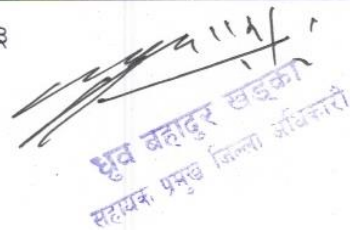 ३
ध्रुव बहादुर खड्का
सहायक प्रमुख जिल्ला अधिकारी